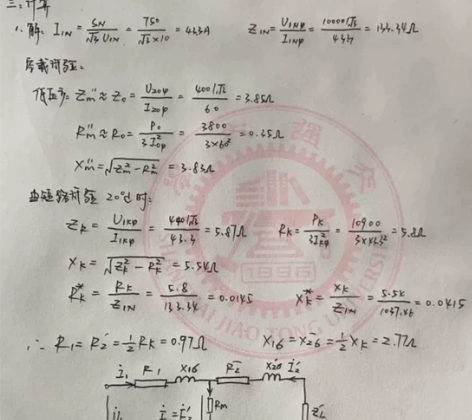 三、计算
1. 解: I₁N = SN/(√3 U₁N) = 750/(√3×10) = 43.3A   Z₁N = U₁Nφ/I₁Nφ = 10000/√3/43.3 = 133.34Ω
空载试验:
低压方: Zm'' ≈ Z₀ = U₂₀φ/I₂₀φ = 400/√3/60 = 3.85Ω
Rm'' ≈ R₀ = P₀/(3I²₀φ) = 3800/(3×60²) = 0.35Ω
Xm'' = √(Z²m − R²m) = 3.83Ω
由短路试验 20℃时:
ZK = U₁Kφ/I₁Kφ = 440/√3/43.3 = 5.87Ω   RK = PK/(3I²Kφ) = 10900/(3×43.3²) = 5.8Ω
XK = √(Z²K − R²K) = 5.54Ω
R*K = RK/Z₁N = 5.8/133.34 = 0.0145   X*K = XK/Z₁N = 5.54 = 0.0415
∴ R₁ = R₂' = ½RK = 0.97Ω   X₁б = X₂б = ½XK = 2.77Ω
İ₁ R₁ X₁б R₂' X₂б' İ₂'
Rm Z'L
1896
JIAO TONG UNIVERSITY